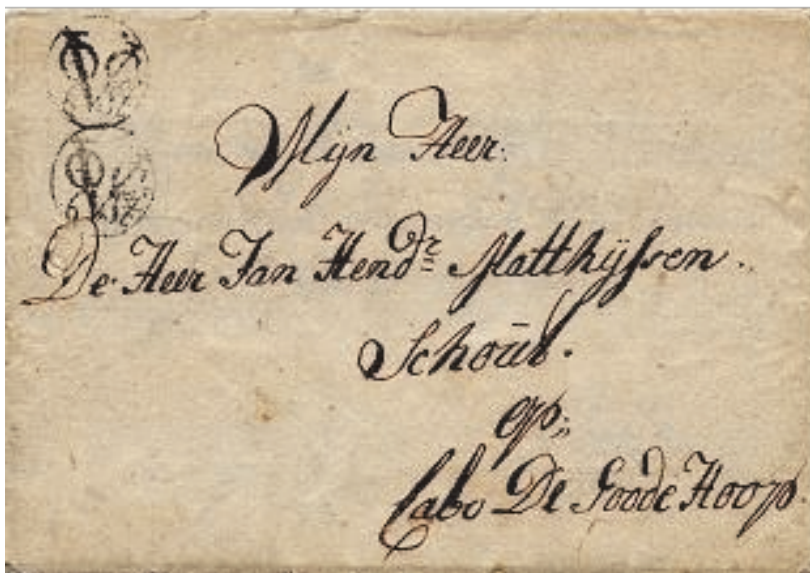 Mÿn Heer.
De Heer Jan Hendr. Matthÿssen.
Schoūt.
op
Cabo De Goode Hoop.